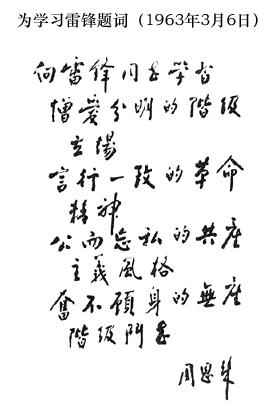 为学习雷锋题词（1963年3月6日）
向雷锋同志学习
憎爱分明的階级
立場
言行一致的革命
精神
公而忘私的共産
主義風格
奮不顧身的無産
階级鬥志
周恩来